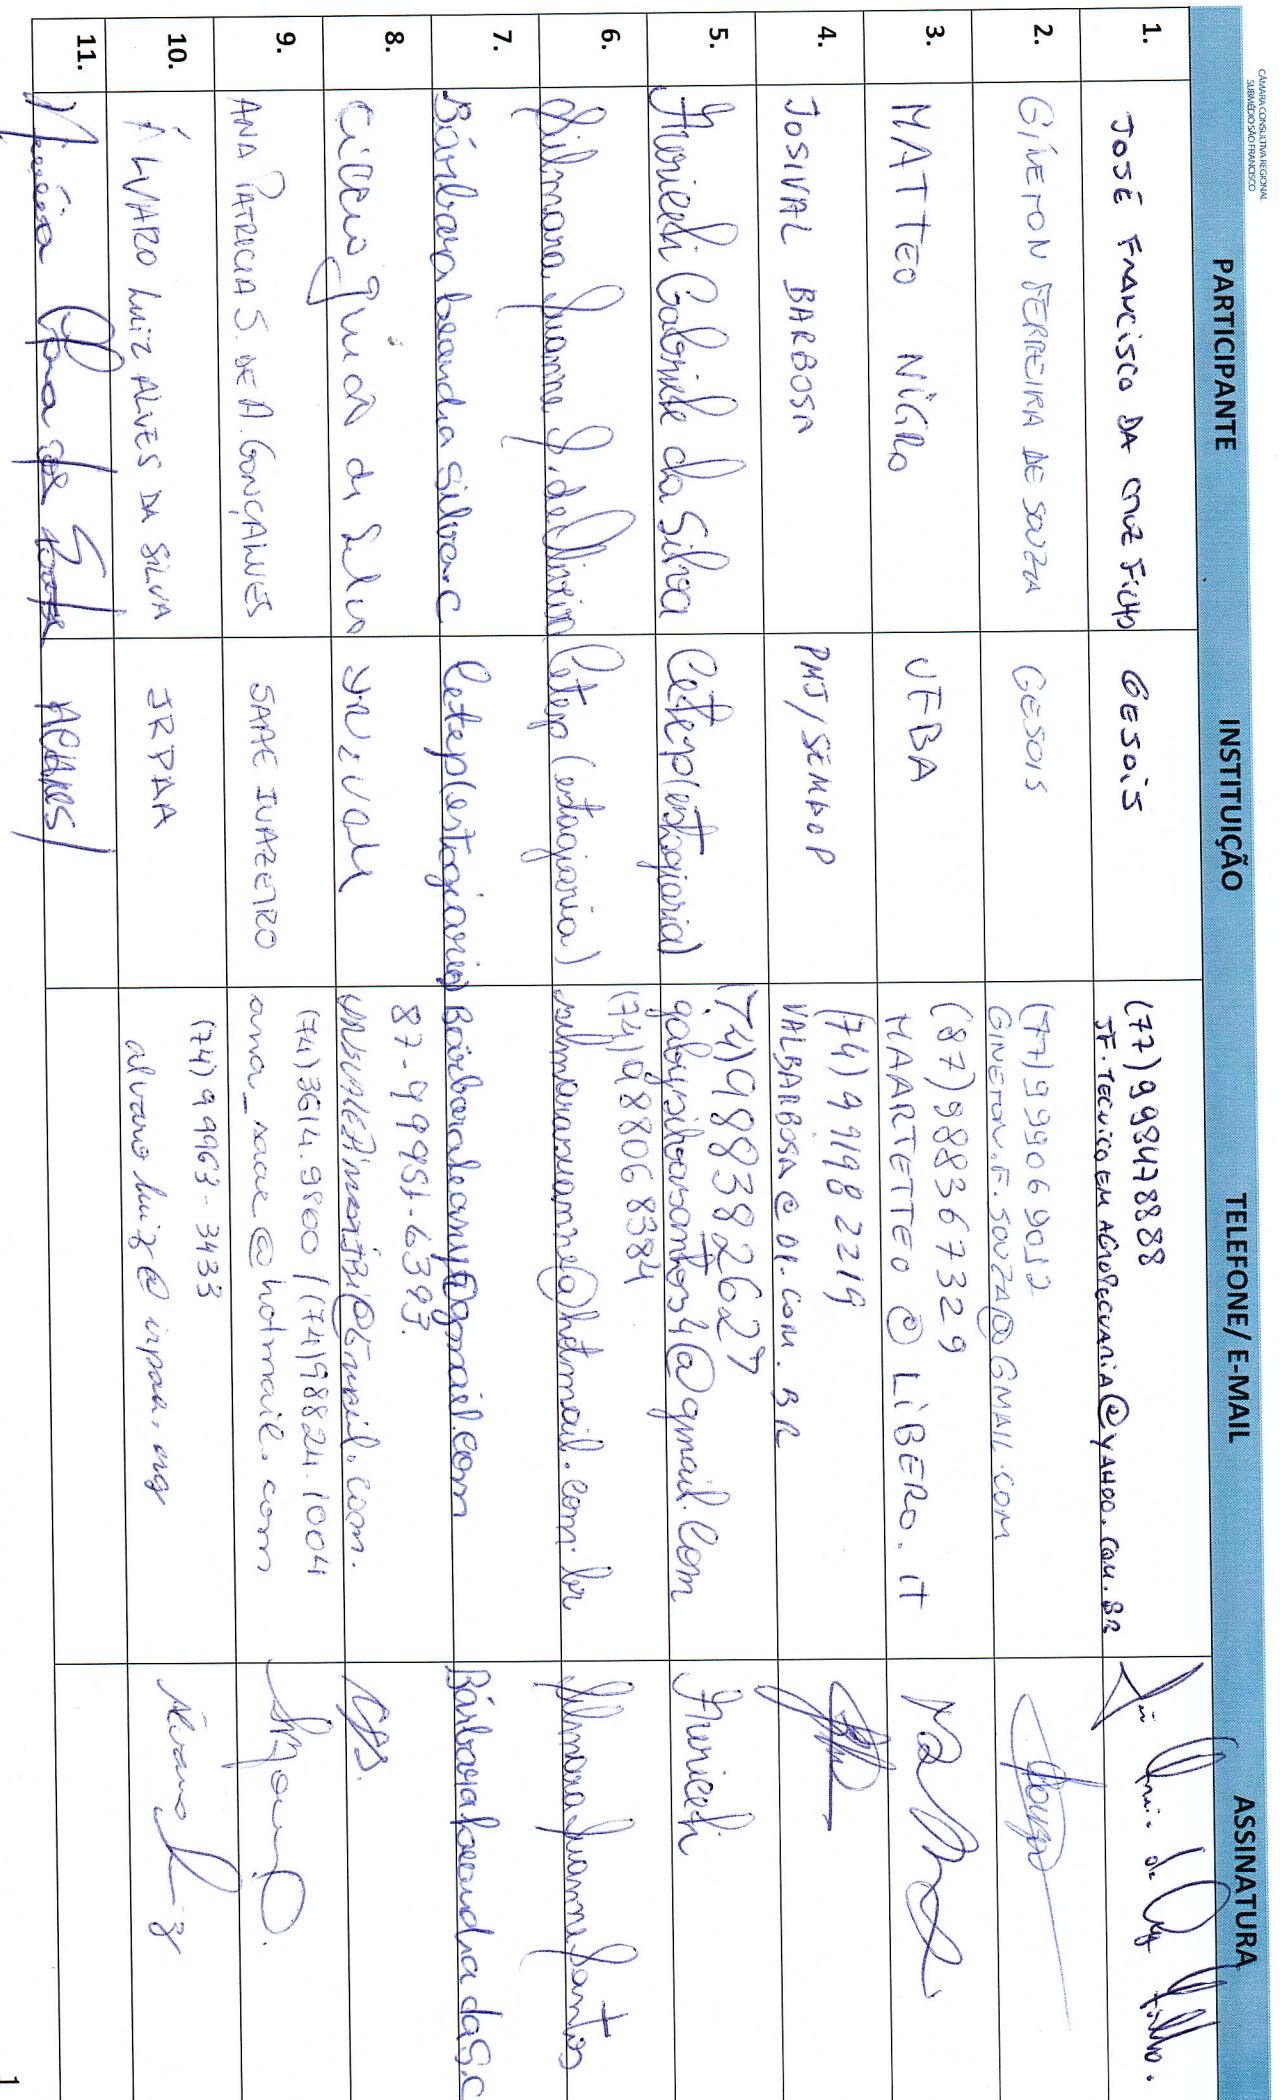 CÂMARA CONSULTIVA REGIONAL
SUBMÉDIO SÃO FRANCISCO
PARTICIPANTE INSTITUIÇÃO TELEFONE/ E-MAIL ASSINATURA
1. JOSÉ FRANCISCO DA CRUZ FILHO GESOIS (77) 998478888
JF.TECNICOEMAGROPECUARIA@YAHOO.COM.BR
2. GINETON FERREIRA DE SOUZA GESOIS (77) 999069012
GINETON.F.SOUZA@GMAIL.COM Souza
3. MATTEO NIGRO UFBA (87) 988367329
MAARTETTEO@LIBERO.IT
4. JOSIVAL BARBOSA PMJ/SEMAOP (74) 991982219
VALBARBOSA@OI.COM.BR
5. Gabriele da Silva Cetep (estagiaria) (74) 988382627
gabysilvasantos4@gmail.com
6. Silmara Juanne S. de Oliveira Cetep (estagiaria) (74) 988068384
silmarajuanne@hotmail.com.br Silmara Juanne Santos
7. Bárbara leandra silva c Cetep (estagiaria) Barbaraleany@gmail.com Bárbara leandra da S.C
8. Cicero da Silva UNIVALE 87-99951-6393.
9. ANA PATRICIA S. DE A. GONÇALVES SAAE JUAZEIRO (74) 3614.9800 / (74) 98824.1004
ana_saae@hotmail.com
10. ÁLVARO LUIZ ALVES DA SILVA IRPAA (74) 99963-3433
alvaroluiz@irpaa.org Álvaro Luiz
11. Maria
1